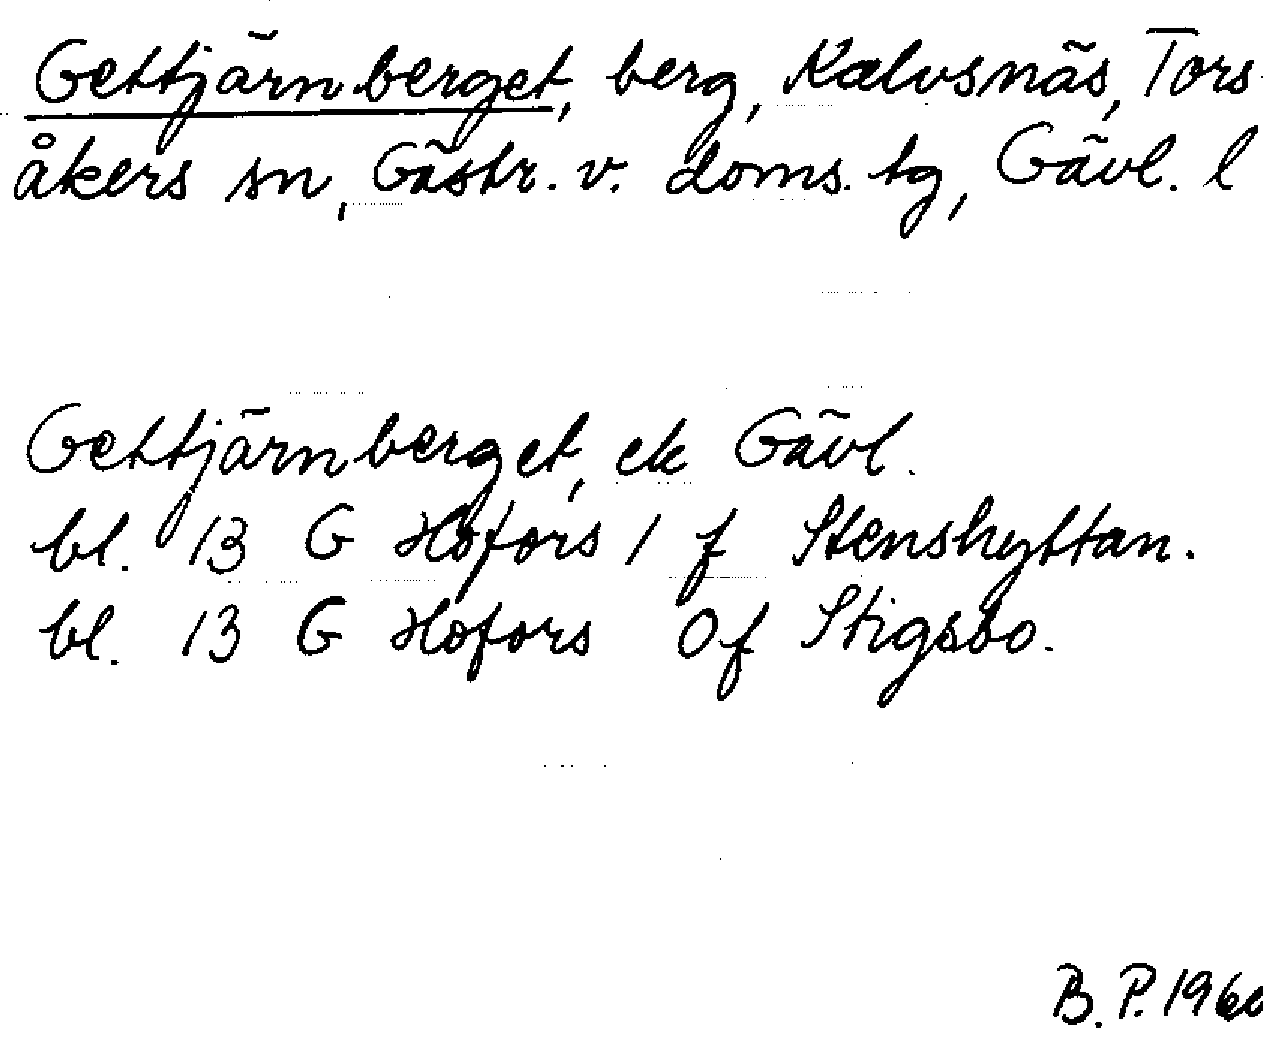 Gettjärnberget, berg, Kalvsnäs, Tors-
åkers sn, Gästr. v. doms. tg, Gävl. l
Gettjärnberget, ek Gävl.
bl. 13 G Hofors 1 f Stenshyttan.
bl. 13 G Hofors 0f Stigsbo.
B.P. 1960